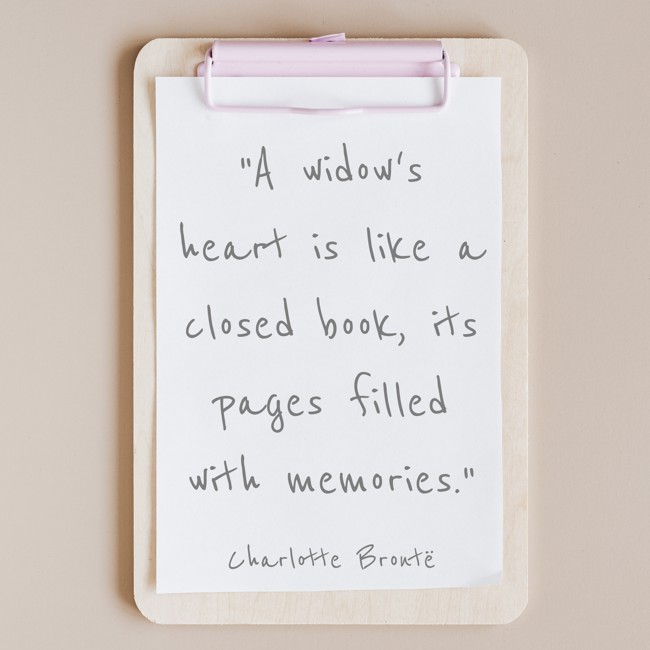 "A widow's
heart is like a
closed book, its
pages filled
with memories."
Charlotte Brontë